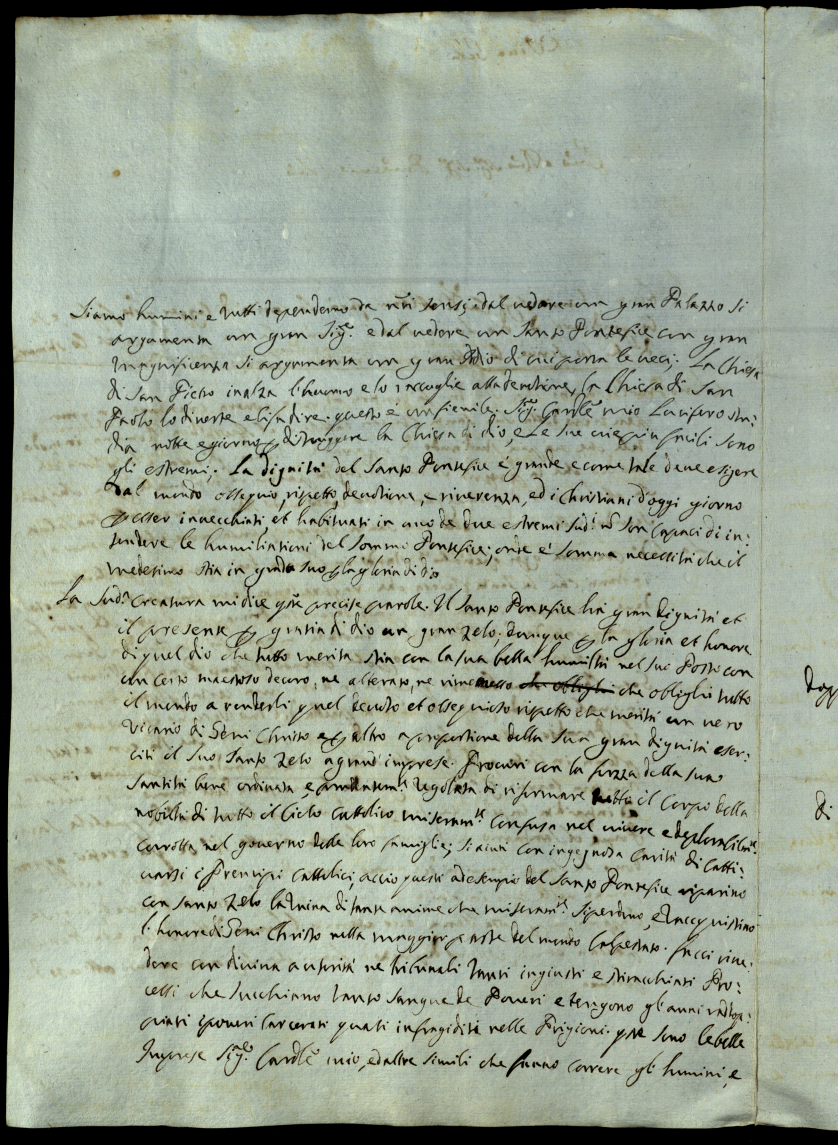 Siamo humini e tutti dependemo da nri sensi, dal vedere un gran Palazzo si
argomenta un gran Sigre. e dal vedere un Santo Pontefice con gran
magnificenza si argomenta un gran Iddio di cui porta le veci; La Chiesa
di San Pietro inalza l'huomo e lo raccoglie alla devotione, la Chiesa di San
Paolo lo diverte e li fa dire. questo è un fienile. Sigr. Cardle mio Lucifero stu:
dia notte e giorno p distruggere la Chiesa di Dio, e le sue vie più facili sono
gli estremi; La dignità del Santo Pontefice è grande e come tale deve esigere
dal mondo ossequio, rispetto, devotione, e riverenza, ed i Christiani d'oggi giorno
p esser invecchiati et habituati in uno de due estremi sud.i nō son capaci di in:
tendere le humiliationi del Sommo Pontefice; onde è somma necessità che il
medesimo stia in grado suo p la gloria di dio
La Sud.a Creatura mi dice qste precise parole. Il Santo Pontefice hà gran dignità et
il presente p gratia di dio un gran zelo; dunque p la gloria et honore
di quel dio che tutto merita stia con la sua bella humiltà nel suo Posto con
un certo maestoso decoro, ne alterato, ne rimesso che oblighi che oblighi tutto
il mondo a renderli quel devoto et ossequioso rispetto che merita un vero
Vicario di Giesù Christo e p altro a proportione della sua gran dignità eser:
citi il suo santo zelo a grandi imprese. Procuri con la forza della sua
Santità bene ordinata e prudentem.te regolata di riformare tutto il Corpo della
nobiltà di tutto il Cielo Cattolico miseram.te confusa nel vivere e deplorabilm.te
corrotta nel governo delle loro famiglie; si aiuti con ingegnosa carità di catti:
varsi i Prencipi Cattolici, acciò questi ad esempio del Santo Pontefice riparino
con santo zelo la ruina di tante anime che miseram.te si perdono, e racquistino
l'honore di Giesù Christo nella maggior parte del mondo calpestato. facci rive:
dere con divina autorità ne tribunali tanti ingiusti e stiracchiati Pro:
cessi che succhiano tanto sangue de Poveri e tengono gl'anni radop:
piati i poveri Carcerati quasi infragiditi nelle Prigioni. qste sono le belle
Imprese Sigre. Cardle mio, ed altre simili che fanno correre gl'humini, e